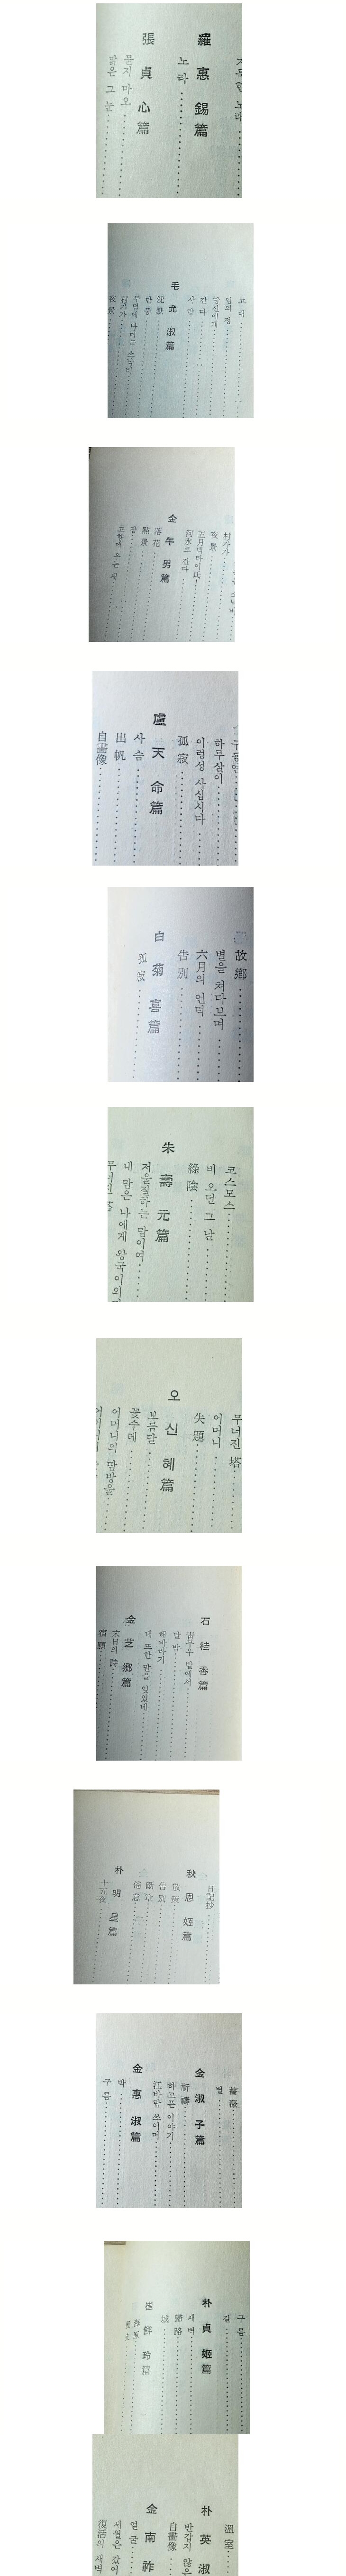 羅惠錫篇
노라
張貞心篇
묻지 마오
맑은 그 눈
고 대
임의 정
당신에게
간다
사랑
毛允淑篇
沈默
단풍
무덤에 나리는 소낙비
村가가
夜景
村가가
夜景
五月 박타이氏!
河水로 간다
金午男篇
落花
熊景
잠
고향에 우는 새
하루살이
이렇성 사십시다
孤寂
盧天命篇
사슴
出帆
自畵像
故鄉
별을 쳐다보며
六月의 언덕
告別
白菊喜篇
孤寂
코스모스
비 오던 그 날
綠陰
朱壽元篇
저울질하는 맘이여
내 맘은 나에게 왕국이외
무너진 塔
어머니
失題
오신혜篇
보름달
꽃수레
어머니의 땀방울
石桂香篇
靑무우 밭에서
달 밤
해바라기
내 또한 말을 잊었네
金芝鄕篇
末日의 詩
宿願
日記抄
秋恩姬篇
散策
告別
斷章
倦怠
朴明星篇
十五夜
薔薇
별
金淑子篇
祈禱
하고픈 이야기
江바람 쏘이며
金惠淑篇
박
구름
구름
길
朴貞姬篇
새벽
歸路
城
崔鮮玲篇
溫室
반갑지 않은
自畵像
朴英淑
金南祚
얼굴
세월은 갔어
復活의 새벽